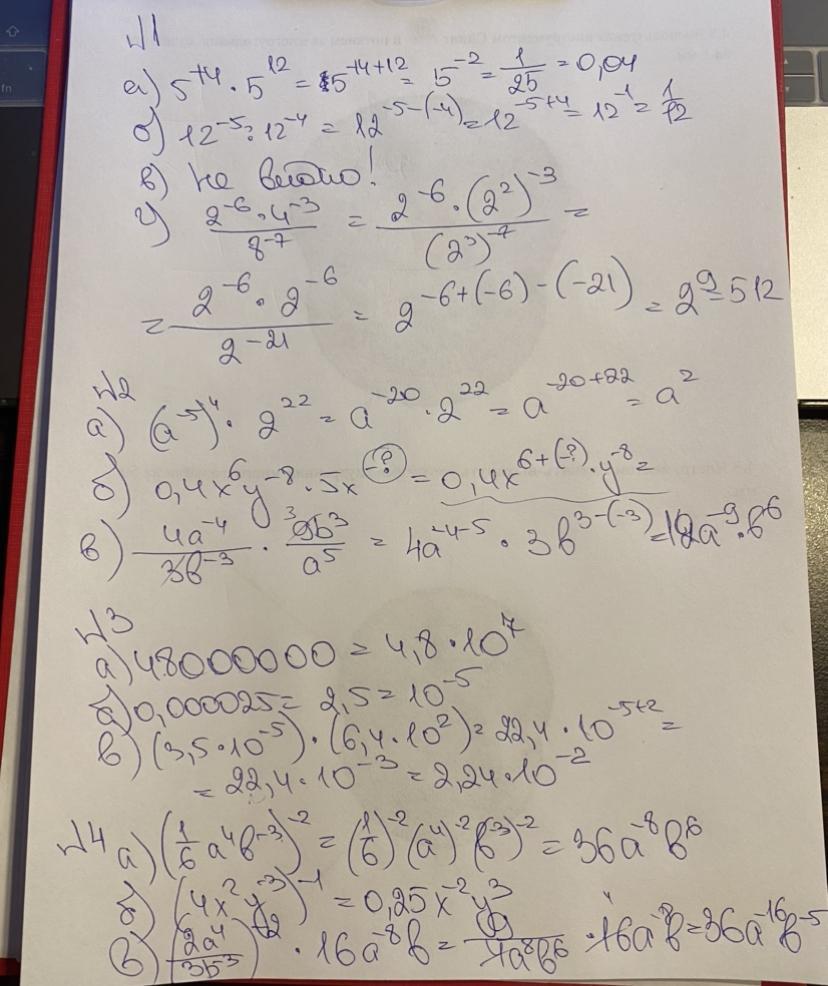 №1
а) 5^{+4} · 5^{12} = 5^{-14+12} = 5^{-2} = \frac{1}{25} = 0,04
б) 12^{-5} : 12^{-4} = 12^{-5-(-4)} = 12^{-5+4} = 12^{-1} = \frac{1}{12}
в) не видно!
г) \frac{2^{-6} · 4^{-3}}{8^{-7}} = \frac{2^{-6} · (2^2)^{-3}}{(2^3)^{-7}} =
= \frac{2^{-6} · 2^{-6}}{2^{-21}} = 2^{-6+(-6)-(-21)} = 2^9 = 512
№2
а) (a^{-5})^4 · 2^{22} = a^{-20} · 2^{22} = a^{-20+22} = a^2
б) 0,4x^6y^{-8} · 5x^{-?} = 0,4x^{6+(-?)} · y^{-8} =
в) \frac{4a^{-4}}{3b^{-3}} · \frac{9b^3}{a^5} = 4a^{-4-5} · 3b^{3-(-3)} = 12a^{-9} · b^6
№3
а) 48000000 = 4,8 · 10^7
б) 0,000025 = 2,5 = 10^{-5}
в) (3,5 · 10^{-5}) · (6,4 · 10^2) = 22,4 · 10^{-5+2} =
= 22,4 · 10^{-3} = 2,24 · 10^{-2}
№4 а) (\frac{1}{6} a^4 b^{-3})^{-2} = (\frac{1}{6})^{-2} (a^4)^{-2} (b^{-3})^{-2} = 36a^{-8}b^6
б) (4x^2y^{-3})^{-1} = 0,25x^{-2}y^3
в) (\frac{2a^4}{3b^{-3}})^{-2} · 16a^{-8}b = \frac{9}{4a^8b^6} · 16a^{-8}b = 36a^{-16}b^{-5}